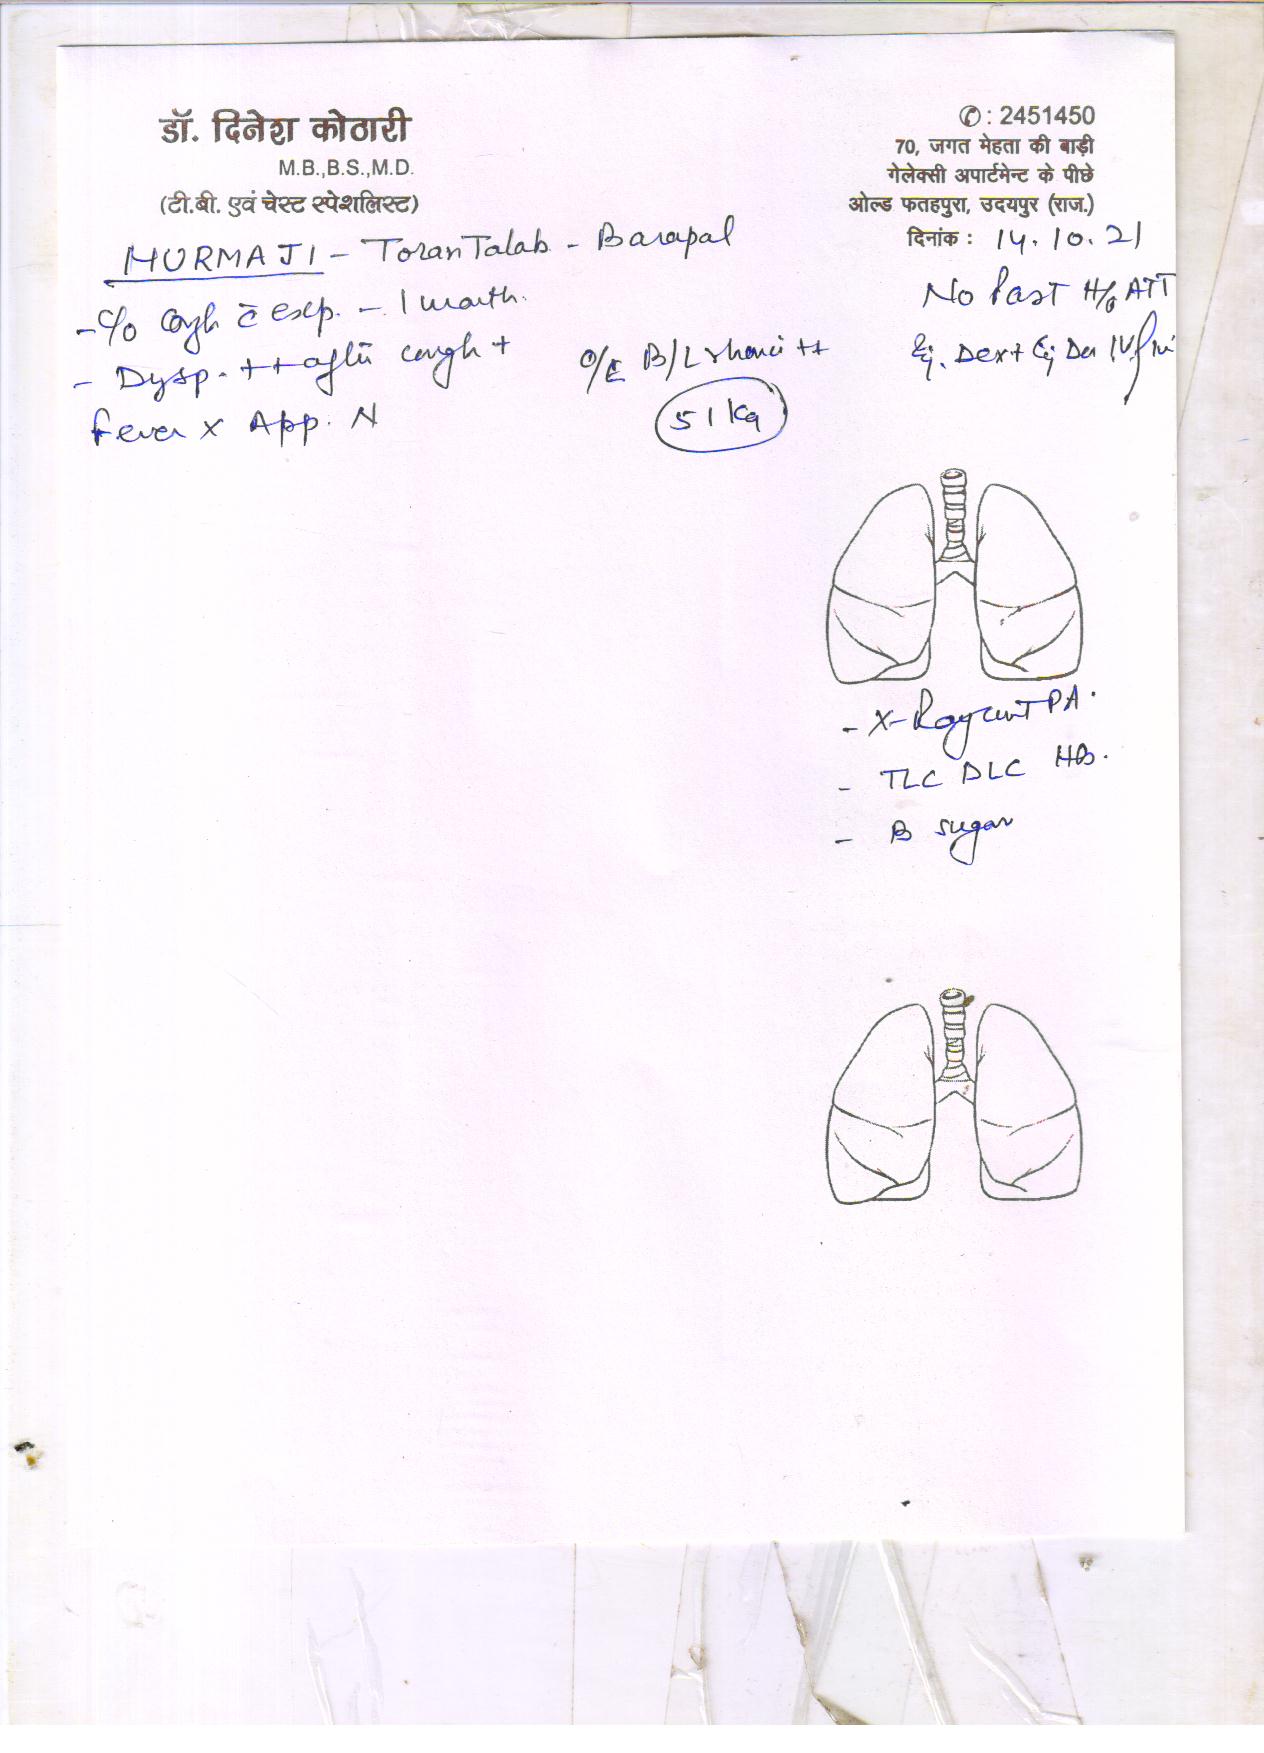 डॉ. दिनेश कोठारी
M.B.,B.S.,M.D.
(टी.बी. एवं चेस्ट स्पेशलिस्ट)
✆ : 2451450
70, जगत मेहता की बाड़ी
गेलेक्सी अपार्टमेन्ट के पीछे
ओल्ड फतहपुरा, उदयपुर (राज.)
दिनांक : 14.10.21
HURMA JI - Toran Talab - Barapal
- C/o Cough c̄ exp. - 1 month.
- Dysp. ++ after cough +
Fever x App. N
O/E B/L rhonchi ++
51 Kg
No Past H/o ATT
Inj. Dex + Inj Der IV
- X-Ray chest PA.
- TLC DLC HB.
- B sugar